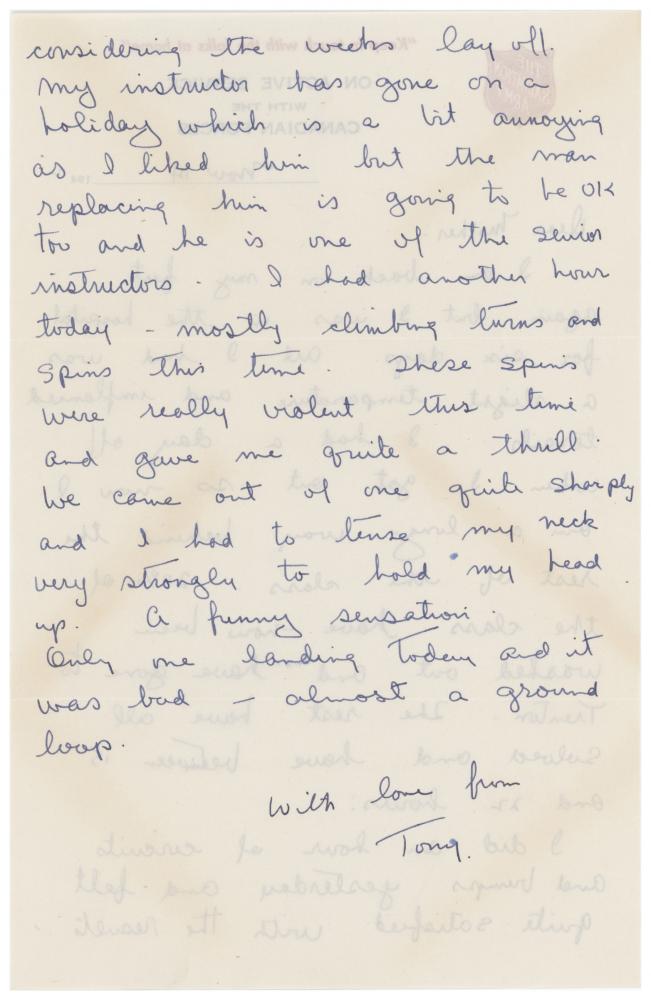 considering the weeks lay off.
My instructor has gone on a
holiday which is a bit annoying
as I liked him but the man
replacing him is going to be OK
too and he is one of the senior
instructors. I had another hour
today - mostly climbing turns and
spins this time. These spins
were really violent this time
and gave me quite a thrill.
We came out of one quite sharply
and I had to tense my neck
very strongly to hold my head
up. A funny sensation.
Only one landing today and it
was bad - almost a ground
loop.
With love from
Tony.